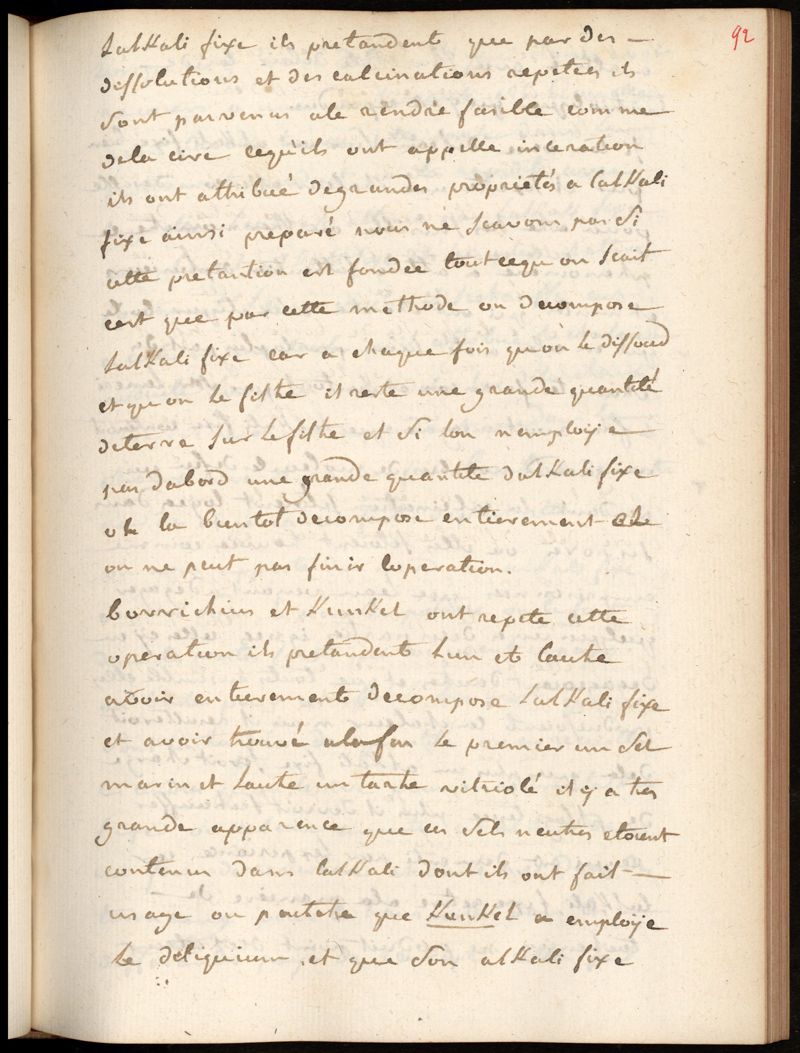 92
Lalkali fixe ils pretandent que par des —
dissolutions et des calcinations repetées ils
sont parvenus ale rendre fusible comme
dela cire cequils ont appelle inceration
ils ont attribué degrandes propriétés a lalkali
fixe ainsi preparé nous ne scavons pas si
cette pretantion est fondée toutcequ on scait
cest que par cette methode on decompose
Lalkali fixe car a chaque fois quon le dissoud
et qu on le filtre il reste une grande quantité
deterre sur le filtre et si lon nemployie
pas dabord une grande quantite dalkali fixe
on la bientot decompose entierement et
on ne peut pas finir loperation.
borrichius et Kunkel ont repete cette
operation ils pretandent lun et lautre
avoir entierement decompose Lalkali fixe
et avoir trouvé alafin le premier un sel
marin et lautre un tartre vitriolé il y a tres
grande apparence que ces sels neutres etoient
contenus dans lalkali dont ils ont fait —
usage ou peutetre que Kunkel a employe
le deliquium et que son alkali fixe